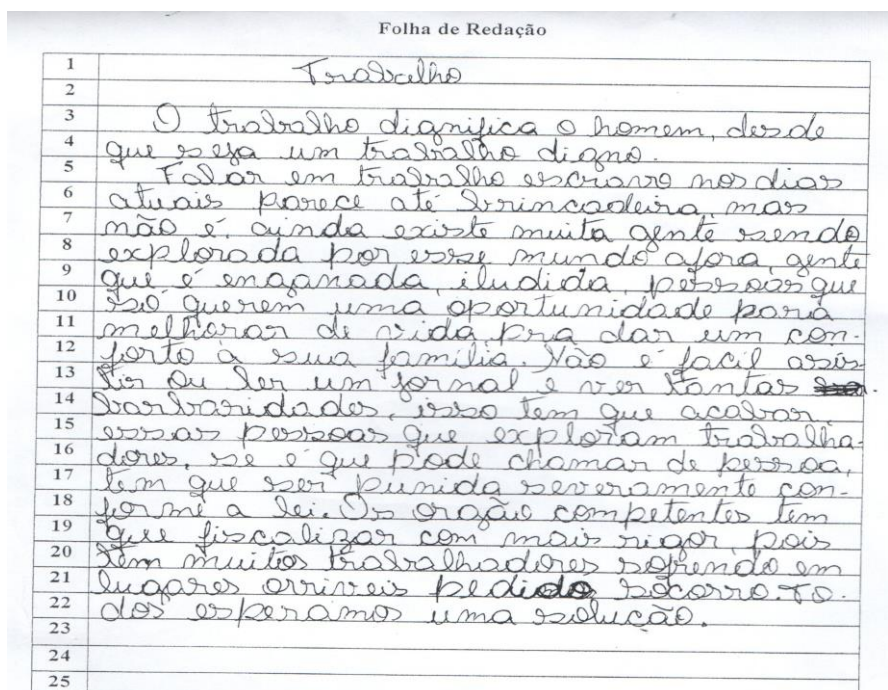 Folha de Redação
1 Trabalho
2
3 O trabalho dignifica o homem, desde
4 que seja um trabalho digno.
5 Falar em trabalho escravo nos dias
6 atuais parece até brincadeira, mas
7 não é, ainda existe muita gente sendo
8 explorada por esse mundo afora, gente
9 que é enganada, iludida, pessoas que
10 só querem uma oportunidade para
11 melhorar de vida, pra dar um con-
12 forto à sua família. Não é facil asis-
13 tir ou ler um jornal e ver tantas
14 barbaridades, isso tem que acabar,
15 essas pessoas que exploram trabalha-
16 dores, se é que pode chamar de pessoa,
17 tem que ser punida severamente con-
18 forme a lei. Os orgãos competentes tem
19 que fiscalizar com mais rigor, pois
20 têm muitos trabalhadores sofrendo em
21 lugares orriveis pedido socorro. To-
22 dos esperamos uma solução.
23
24
25